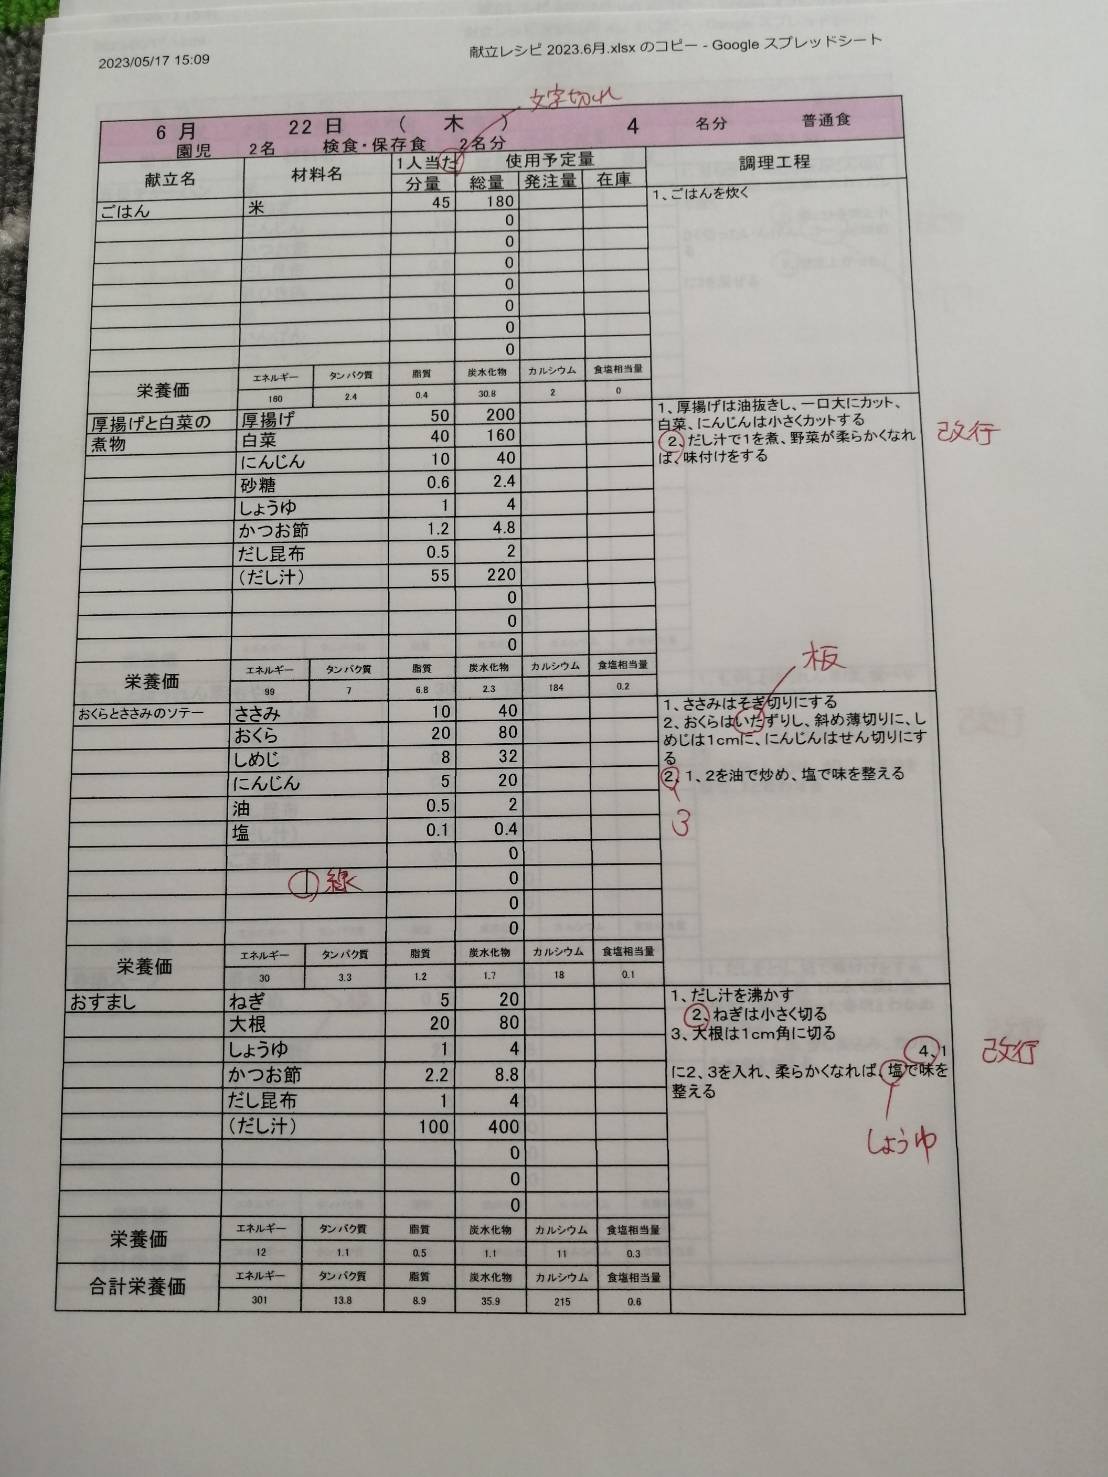 2023/05/17 15:09
献立レシピ 2023.6月.xlsx のコピー - Google スプレッドシート
文字切れ
6 月 22 日 ( 木 ) 4 名分 普通食
園児 2名 検食・保存食 2名分
献立名 材料名 1人当た 使用予定量 調理工程
分量 総量 発注量 在庫
ごはん 米 45 180 1、ごはんを炊く
0
0
0
0
0
0
0
栄養価 エネルギー タンパク質 脂質 炭水化物 カルシウム 食塩相当量
160 2.4 0.4 30.8 2 0
厚揚げと白菜の 厚揚げ 50 200 1、厚揚げは油抜きし、一口大にカット、
煮物 白菜 40 160 白菜、にんじんは小さくカットする
2、だし汁で1を煮、野菜が柔らかくなれ 改行
にんじん 10 40 ば、味付けをする
砂糖 0.6 2.4
しょうゆ 1 4
かつお節 1.2 4.8
だし昆布 0.5 2
(だし汁) 55 220
0
0
0
栄養価 エネルギー タンパク質 脂質 炭水化物 カルシウム 食塩相当量
99 7 6.8 2.3 184 0.2
板
おくらとささみのソテー ささみ 10 40 1、ささみはそぎ切りにする
おくら 20 80 2、おくらはいたずりし、斜め薄切りに、し
めじは1cmに、にんじんはせん切りにす
しめじ 8 32 る
にんじん 5 20 2、1、2を油で炒め、塩で味を整える
油 0.5 2 3
塩 0.1 0.4
0
| 線 0
0
0
栄養価 エネルギー タンパク質 脂質 炭水化物 カルシウム 食塩相当量
30 3.3 1.2 1.7 18 0.1
おすまし ねぎ 5 20 1、だし汁を沸かす
大根 20 80 2、ねぎは小さく切る
3、大根は1cm角に切る
しょうゆ 1 4 4、1 改行
かつお節 2.2 8.8 に2、3を入れ、柔らかくなれば、塩で味を
だし昆布 1 4 整える
(だし汁) 100 400 しょうゆ
0
0
0
栄養価 エネルギー タンパク質 脂質 炭水化物 カルシウム 食塩相当量
12 1.1 0.5 1.1 11 0.3
合計栄養価 エネルギー タンパク質 脂質 炭水化物 カルシウム 食塩相当量
301 13.8 8.9 35.9 215 0.6